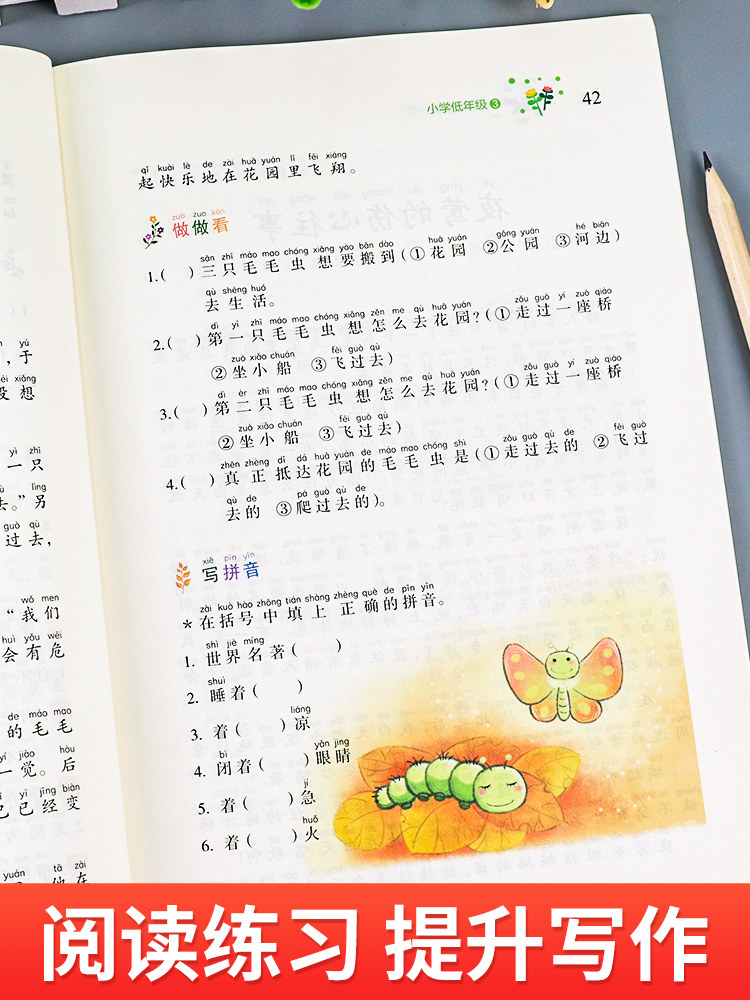 yú
，于
ěi xiǎng
没想
yì zhī
一只
qù lìng
去。”另
guò qù
过去，
wǒ men
“我们
huì yǒu wēi
会有危
de máo mao
的毛毛
yí jiào hòu
一觉。后
yǐ jīng biàn
已已经变
tā zài
他在
小学低年级❸ 42
qǐ kuài lè de zài huā yuán lǐ fēi xiáng
起快乐地在花园里飞翔。
zuò zuo kàn
做做看
sān zhī máo mao chóng xiǎng yào bān dào huā yuán gōng yuán hé biān
1.( )三只毛毛虫想要搬到(①花园 ②公园 ③河边)
qù shēng huó
去生活。
dì yī zhī máo mao chóng xiǎng zěn me qù huā yuán zǒu guò yí zuò qiáo
2.( )第一只毛毛虫想怎么去花园?(①走过一座桥
zuò xiǎo chuán fēi guò qù
②坐小船 ③飞过去)
dì èr zhī máo mao chóng xiǎng zěn me qù huā yuán zǒu guò yí zuò qiáo
3.( )第二只毛毛虫想怎么去花园?(①走过一座桥
zuò xiǎo chuán fēi guò qù
②坐小船 ③飞过去)
zhēn zhèng dǐ dá huā yuán de máo mao chóng shì zǒu guò qù de fēi guò
4.( )真正抵达花园的毛毛虫是(①走过去的 ②飞过
qù de pá guò qù de
去的 ③爬过去的)。
xiě pīn yīn
写拼音
zài kuò hào zhōng tián shàng zhèng què de pīn yīn
*在括号中填上正确的拼音。
shì jiè míng
1. 世界名著( )
shuì
2. 睡着( )
liáng
3. 着( )凉
bì yǎn jing
4. 闭着( )眼睛
jí
5. 着( )急
huǒ
6. 着( )火
阅读练习 提升写作